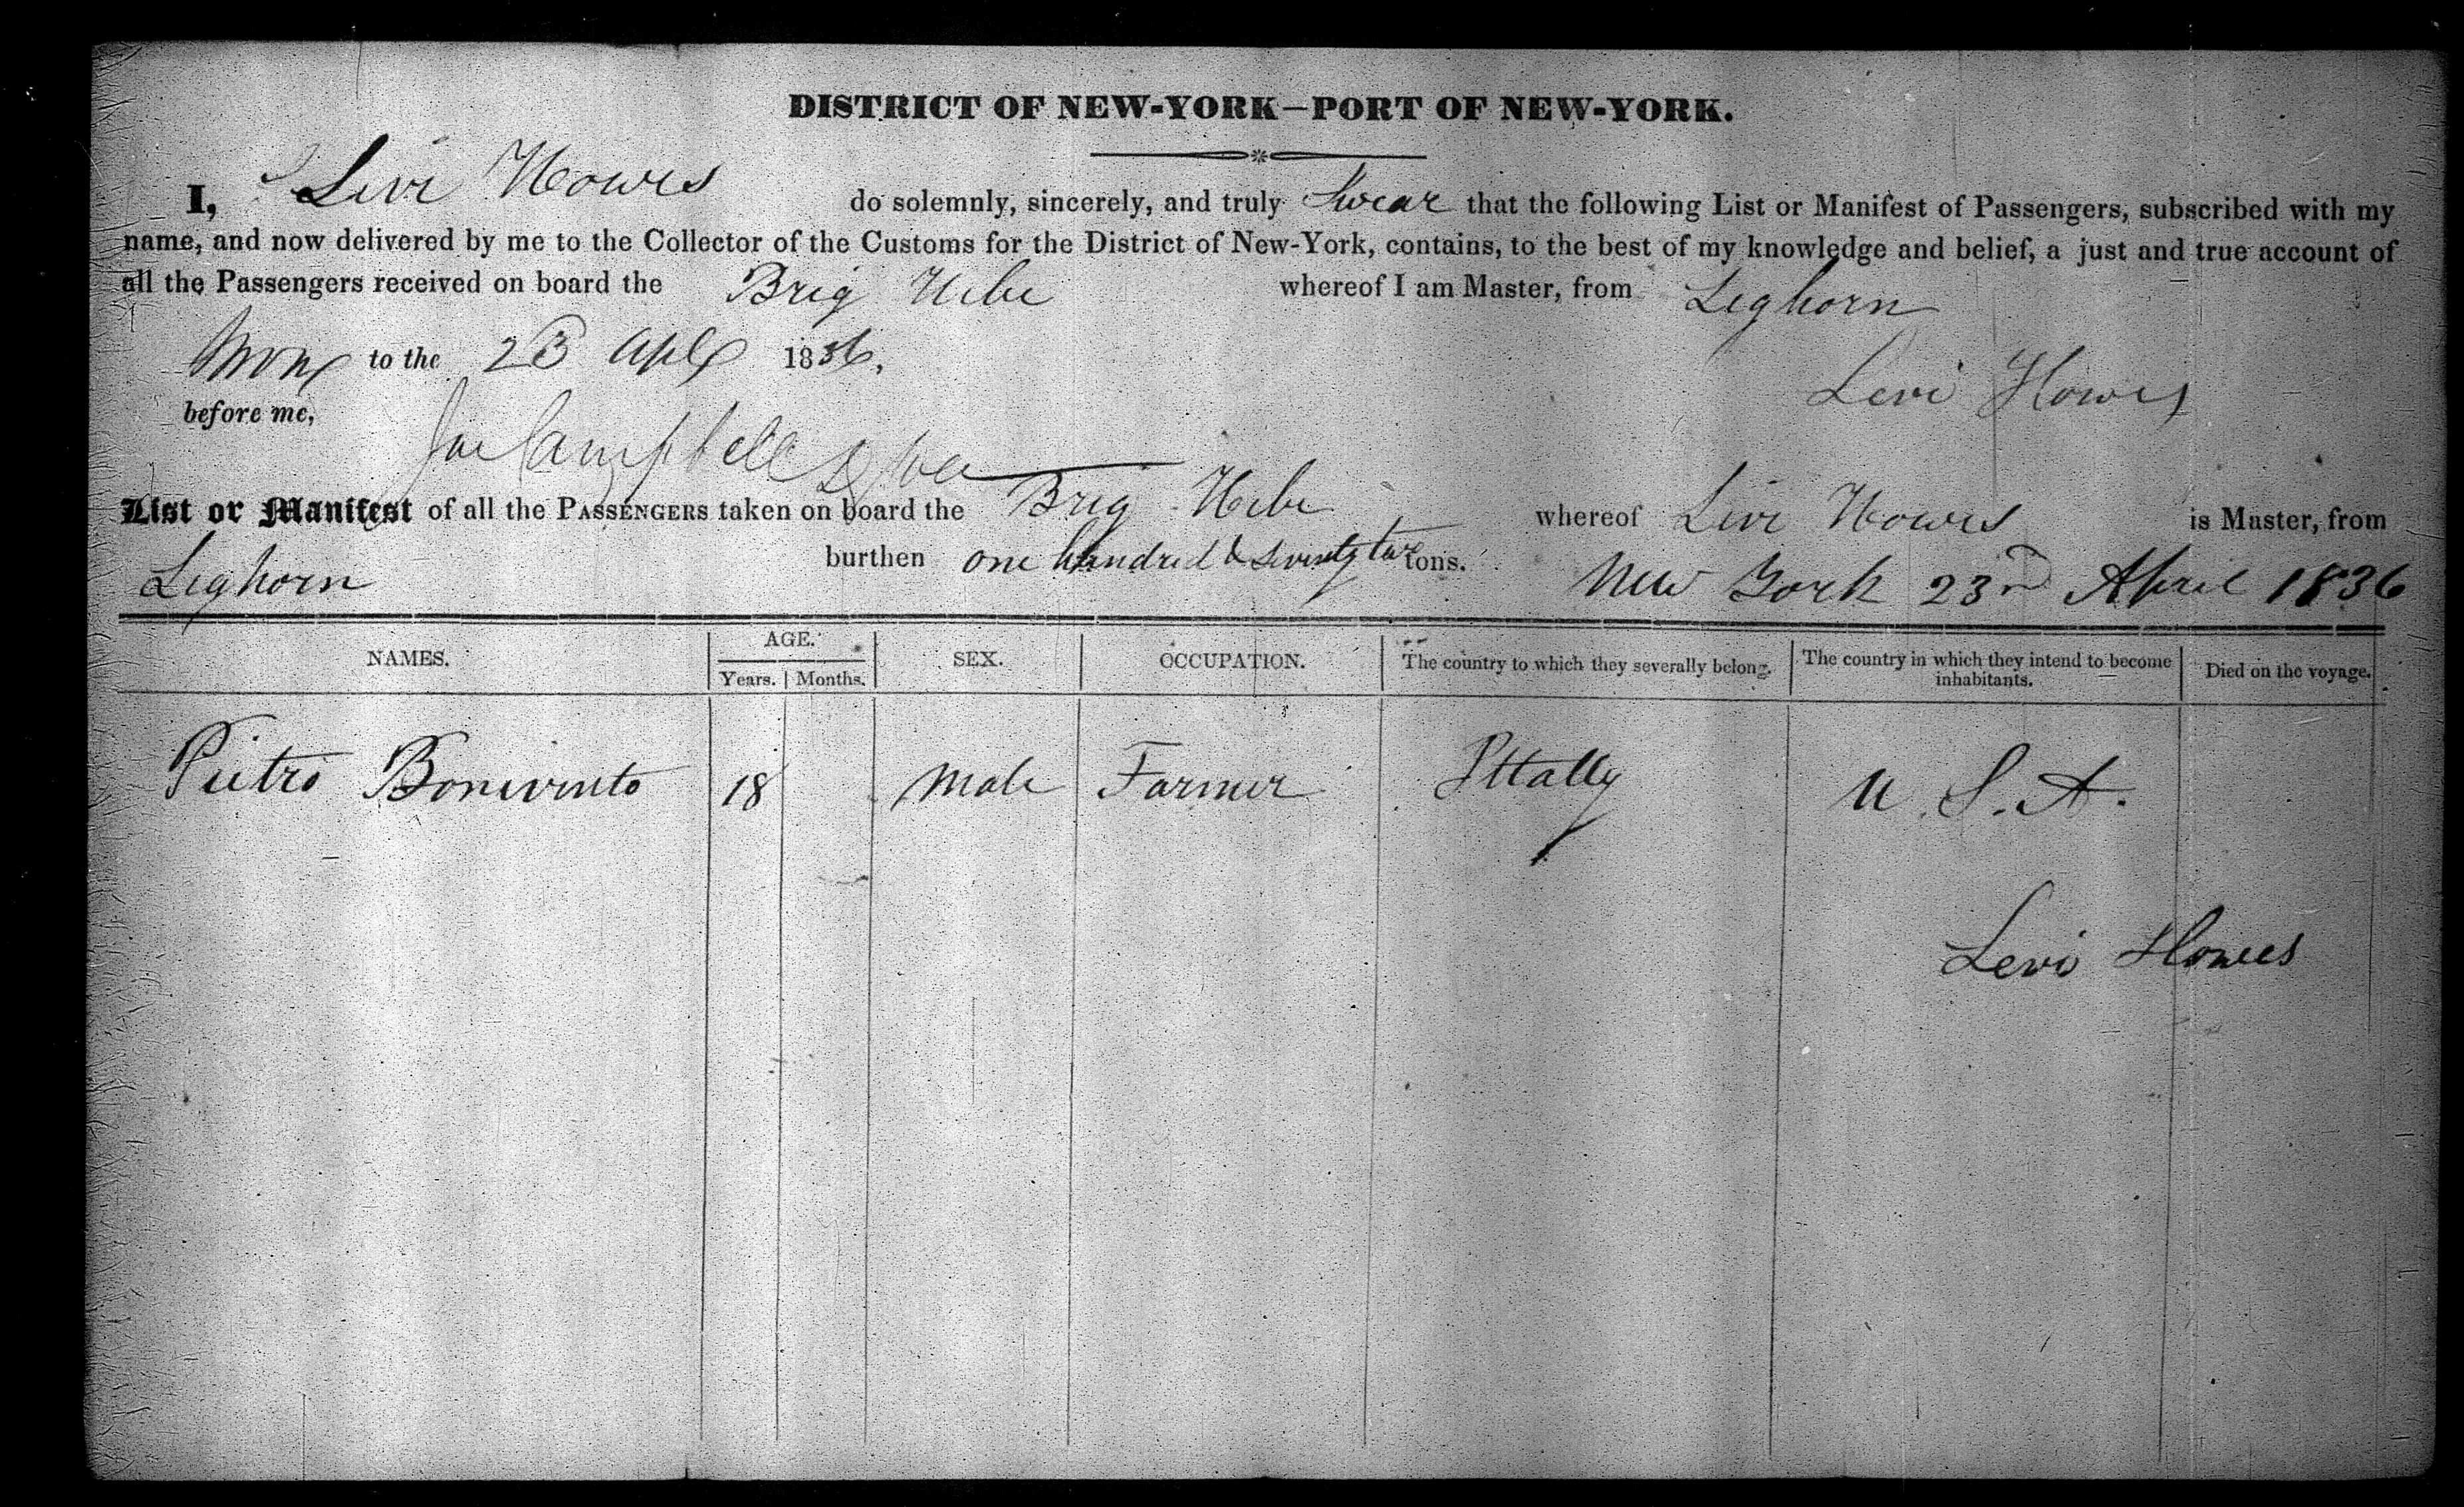 DISTRICT OF NEW-YORK—PORT OF NEW-YORK.
I, Levi Howes do solemnly, sincerely, and truly Swear that the following List or Manifest of Passengers, subscribed with my
name, and now delivered by me to the Collector of the Customs for the District of New-York, contains, to the best of my knowledge and belief, a just and true account of
all the Passengers received on board the Brig Hebe whereof I am Master, from Leghorn
Sworn to the 23 Apl 1836.
Levi Howes
before me,
Campbell
List or Manifest of all the PASSENGERS taken on board the Brig Hebe whereof Levi Howes is Master, from
Leghorn burthen one hundred & seventy two tons. New York 23rd April 1836
NAMES. AGE. Years. Months. SEX. OCCUPATION. The country to which they severally belong. The country in which they intend to become inhabitants. Died on the voyage.
Pietro Bonivento 18 Male Farmer Ittally U. S. A.
Levi Howes